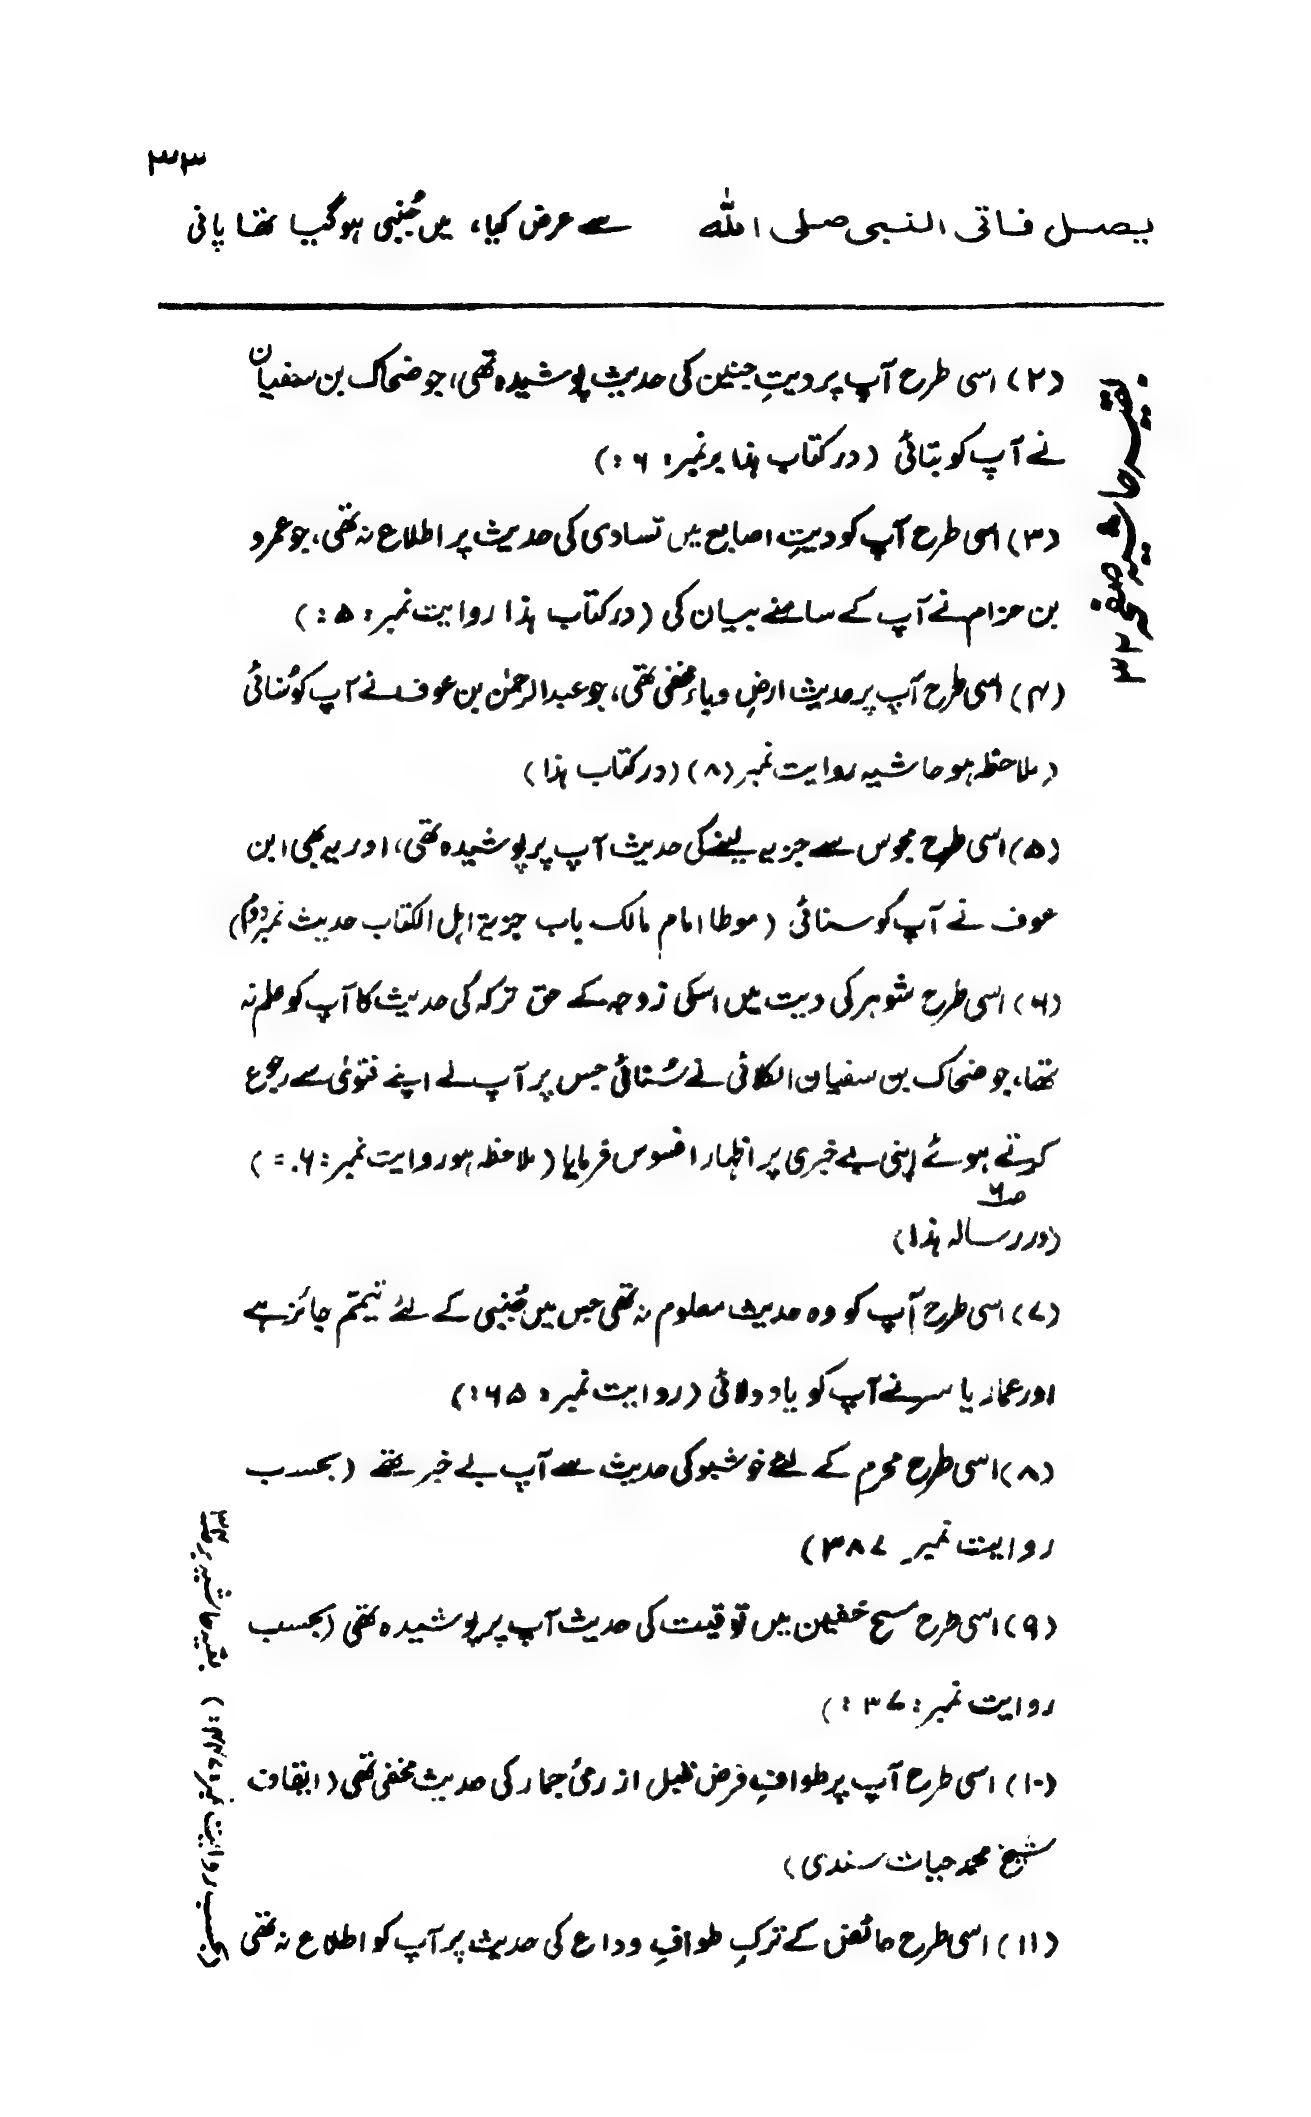 ۳۳
یصل فاتی النبی صلی اللہ سے عرض کیا، میں جُنبی ہوگیا تھا پانی
بقیہ حاشیہ صفحہ ۳۲
(۲) اسی طرح آپ پر دیتِ جنین کی حدیث پوشیدہ تھی، جو ضحاک بن سفیان
نے آپ کو بتائی (در کتاب ہذا بر نمبر: ۶:)
(۳) اسی طرح آپ کو دیتِ اصابع میں تساوی کی حدیث پر اطلاع نہ تھی، جو عمرو
بن حزام نے آپ کے سامنے بیان کی (در کتاب ہذا روایت نمبر: ۵:)
(۴) اسی طرح آپ پر حدیث ارضِ وباء مخفی تھی، جو عبدالرحمٰن بن عوف نے آپ کو سُنائی
(ملاحظہ ہو حاشیہ روایت نمبر (۸) (در کتاب ہذا)
(۵) اسی طرح مجوس سے جزیہ لینے کی حدیث آپ پر پوشیدہ تھی، اور یہ بھی ابن
عوف نے آپ کو سنائی (موطا امام مالک باب جزیۃ اہل الکتاب حدیث نمبر دوم)
(۶) اسی طرح شوہر کی دیت میں اسکی زوجہ کے حق ترکہ کی حدیث کا آپ کو علم نہ
تھا، جو ضحاک بن سفیان الکلائی نے سُنائی جس پر آپ نے اپنے فتویٰ سے رجوع
کرتے ہوئے اپنی بے خبری پر اظہار افسوس فرمایا (ملاحظہ ہو روایت نمبر: ۶۰:)
ص۶
(در رسالہ ہذا)
(۷) اسی طرح آپ کو وہ حدیث معلوم نہ تھی جس میں جُنبی کے لئے تیمّم جائز ہے
اور عمار یاسر نے آپ کو یاد دلائی (روایت نمبر: ۶۵:)
(۸) اسی طرح محرم کے لئے خوشبو کی حدیث سے آپ بے خبر تھے (بحسب
روایت نمبر ۳۸۷)
(۹) اسی طرح مسح خفین میں توقیت کی حدیث آپ پر پوشیدہ تھی (بحسب
روایت نمبر: ۳۷:)
(۱۰) اسی طرح آپ پر طوافِ فرض قبل از رمیٔ جمار کی حدیث مخفی تھی (ایقاف
شیخ محمد حیات سندی)
(۱۱) اسی طرح حائضہ کے ترکِ طوافِ وداع کی حدیث پر آپ کو اطلاع نہ تھی
(بحسب روایت نمبر بقیہ حاشیہ بر ص۳۴